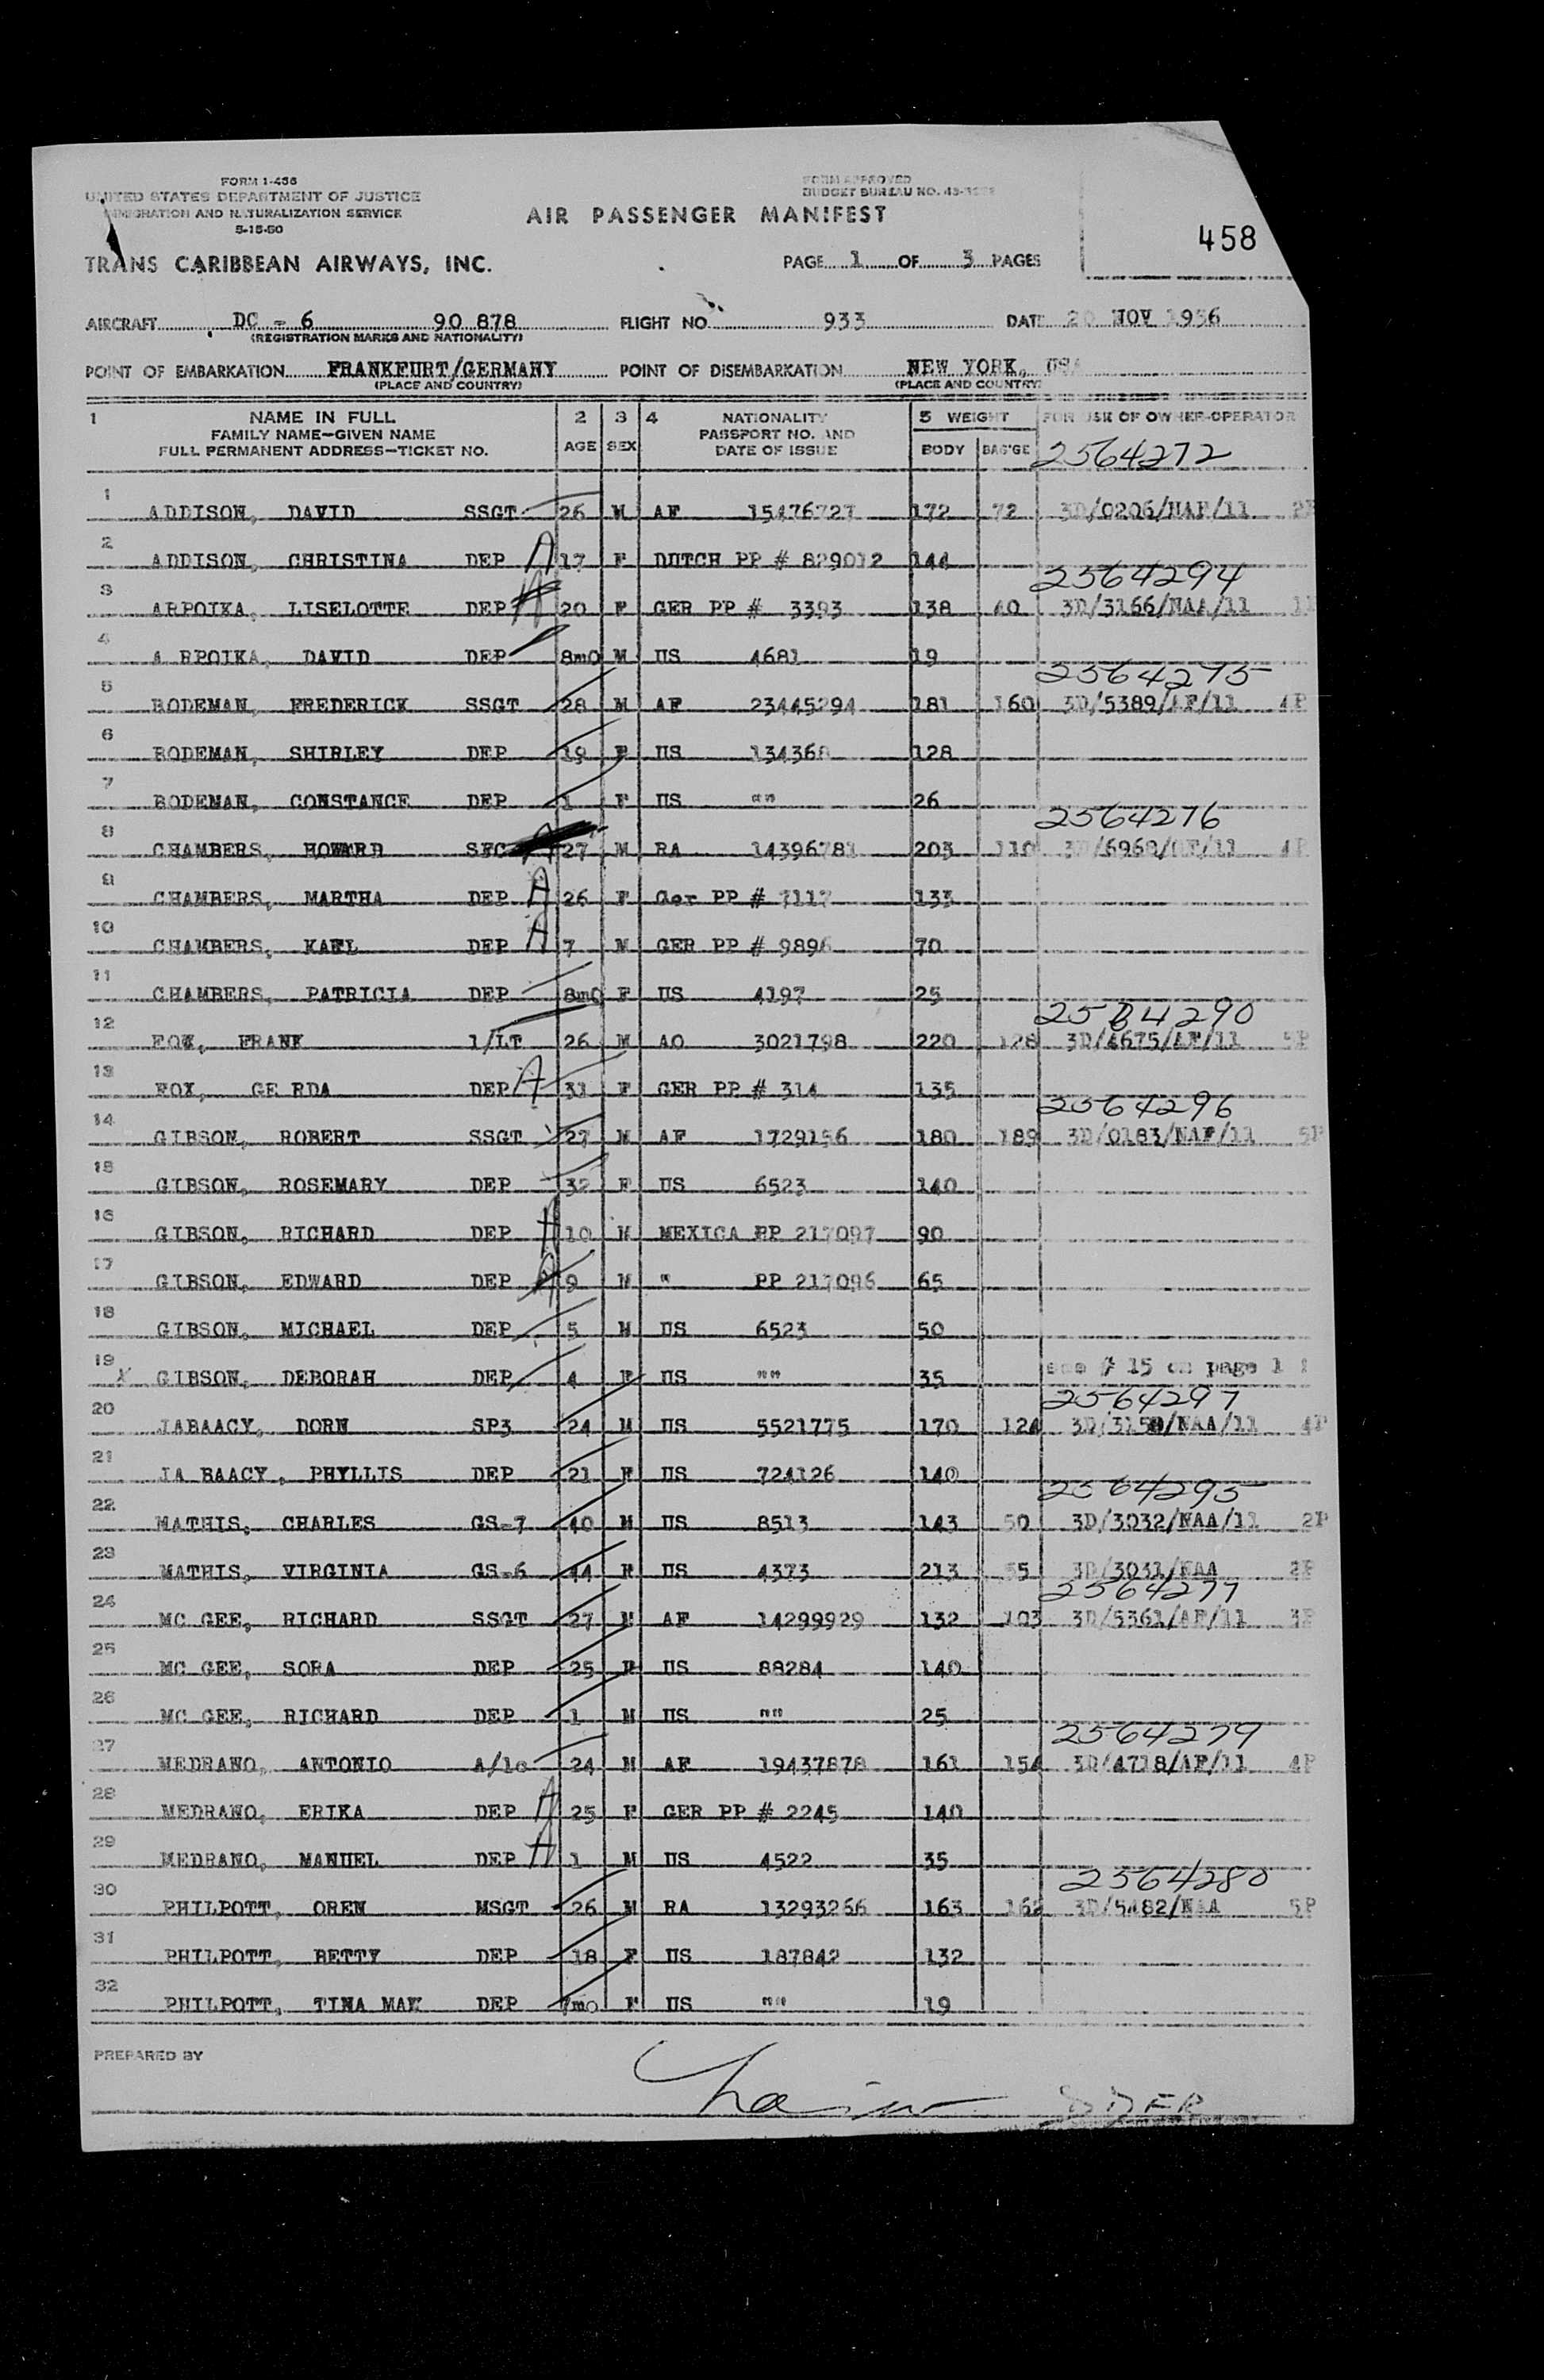 FORM I-466
UNITED STATES DEPARTMENT OF JUSTICE
IMMIGRATION AND NATURALIZATION SERVICE
5-15-50
FORM APPROVED
BUDGET BUREAU NO.
AIR PASSENGER MANIFEST
458
TRANS CARIBBEAN AIRWAYS, INC.
PAGE 1 OF 3 PAGES
AIRCRAFT DC - 6 90 878 FLIGHT NO. 933 DATE 20 NOV 1956
(REGISTRATION MARKS AND NATIONALITY)
POINT OF EMBARKATION FRANKFURT/GERMANY POINT OF DISEMBARKATION NEW YORK, USA
(PLACE AND COUNTRY) (PLACE AND COUNTRY)
1 NAME IN FULL 2 3 4 NATIONALITY 5 WEIGHT FOR USE OF OWNER-OPERATOR
FAMILY NAME—GIVEN NAME AGE SEX PASSPORT NO. AND BODY BAG'GE
FULL PERMANENT ADDRESS—TICKET NO. DATE OF ISSUE
2564272
1 ADDISON, DAVID SSGT 26 M AF 15476727 172 72 3D/0206/NAF/11 2P
2 ADDISON, CHRISTINA DEP A 17 F DUTCH PP # 829012 144
2564294
3 ARPOIKA, LISELOTTE DEP A 20 F GER PP # 3393 138 40 3D/3166/NAA/11
4 A RPOIKA, DAVID DEP 8mO M US 4681 19
2564275
5 BODEMAN, FREDERICK SSGT 28 M AF 23445294 181 160 3D/5389/AF/11 4P
6 BODEMAN, SHIRLEY DEP 19 F US 134368 128
7 BODEMAN, CONSTANCE DEP 1 F US "" 26
2564276
8 CHAMBERS, HOWARD SFC 27 M RA 14396781 203 110 4P
9 CHAMBERS, MARTHA DEP A 26 F Ger PP # 7117 133
10 CHAMBERS, KARL DEP A 7 M GER PP # 9896 70
11 CHAMBERS, PATRICIA DEP 8mO F US 4197 25
2564290
12 FOX, FRANK 1/LT 26 M AO 3021798 220 128 3D/4675/AF/11 5P
13 FOX, GE RDA DEP A 31 F GER PP # 314 135
2564296
14 GIBSON, ROBERT SSGT 27 M AF 1729156 180 189 3D/0183/NAF/11 5P
15 GIBSON, ROSEMARY DEP 32 F US 6523 140
16 GIBSON, RICHARD DEP A 10 M MEXICA PP 217097 90
17 GIBSON, EDWARD DEP A 9 M " PP 217096 65
18 GIBSON, MICHAEL DEP 5 M US 6523 50
19 X GIBSON, DEBORAH DEP 4 F US "" 35 see # 15 on page 1
2564297
20 JABAACY, DORN SP3 24 M US 5521775 170 124 3D/3150/NAA/11 4P
21 JA BAACY, PHYLLIS DEP 21 F US 724126 140
2564295
22 MATHIS, CHARLES GS-7 40 M US 8513 143 50 3D/3032/NAA/11 2P
23 MATHIS, VIRGINIA GS-6 44 F US 4373 213 55 3D/3031/NAA 2P
2564277
24 MC GEE, RICHARD SSGT 27 M AF 14299929 132 103 3D/5361/AF/11 3P
25 MC GEE, SORA DEP 25 F US 88284 140
26 MC GEE, RICHARD DEP 1 M US "" 25
2564279
27 MEDRANO, ANTONIO A/1c 24 M AF 19437878 161 154 3D/4718/AF/11 4P
28 MEDRANO, ERIKA DEP A 25 F GER PP # 2245 140
29 MEDRANO, MANUEL DEP A 1 M US 4522 35
2564280
30 PHILPOTT, OREN MSGT 26 M RA 13293266 163 162 3D/5482/NAA 5P
31 PHILPOTT, BETTY DEP 18 F US 187842 132
32 PHILPOTT, TINA MAE DEP 7mo F US "" 19
PREPARED BY